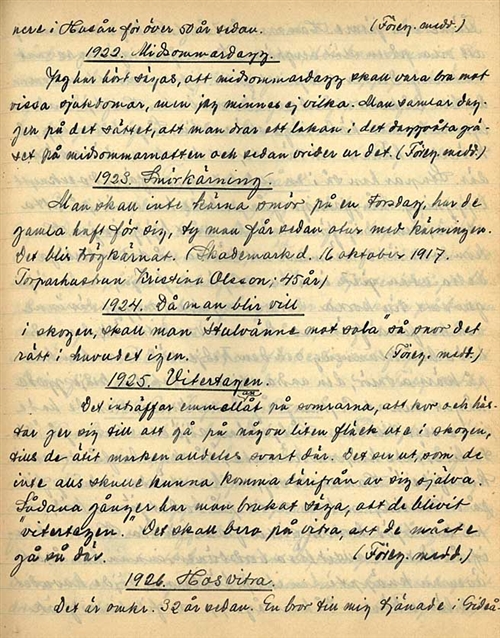 nere i Husån för över 50 år sedan. (Föreg. medd.)
1922. Midsommardagg.
Jag har hört sägas, att midsommardagg skall vara bra mot
vissa sjukdomar, men jag minnes ej vilka. Man samlar dag-
gen på det sättet, att man drar ett lakan i det daggvåta grä-
set på midsommarnatten och sedan vrider ur det. (Föreg. medd.)
1923. Smörkärning.
Man skall inte kärna smör på en torsdag, har de
gamla haft för sig, ty man får sedan otur med kärningen.
Det blir trögkärnat. (Skademark d. 16 oktober 1917.
Torparhustrun Kristina Olsson; 45 år)
1924. Då man blir vill
i skogen, skall man "stulvänne mot sola" så snor det
rätt i huvudet igen. (Föreg. medd.)
1925. Vitertagen.
Det inträffar emmellåt på somrarna, att kor och häs-
tar ger sig till att gå på någon liten fläck ute i skogen,
tills de ätit marken alldeles svart där. Det ser ut som de
inte alls skulle kunna komma därifrån av sig själva.
Sådana gånger har man brukat säga, att de blivit
"vitertagen." Det skall bero på vitra, att de måste
gå så där. (Föreg. medd.)
1926. Hos vitra.
Det är omkr. 32 år sedan. En bror till mig tjänade i Gideå